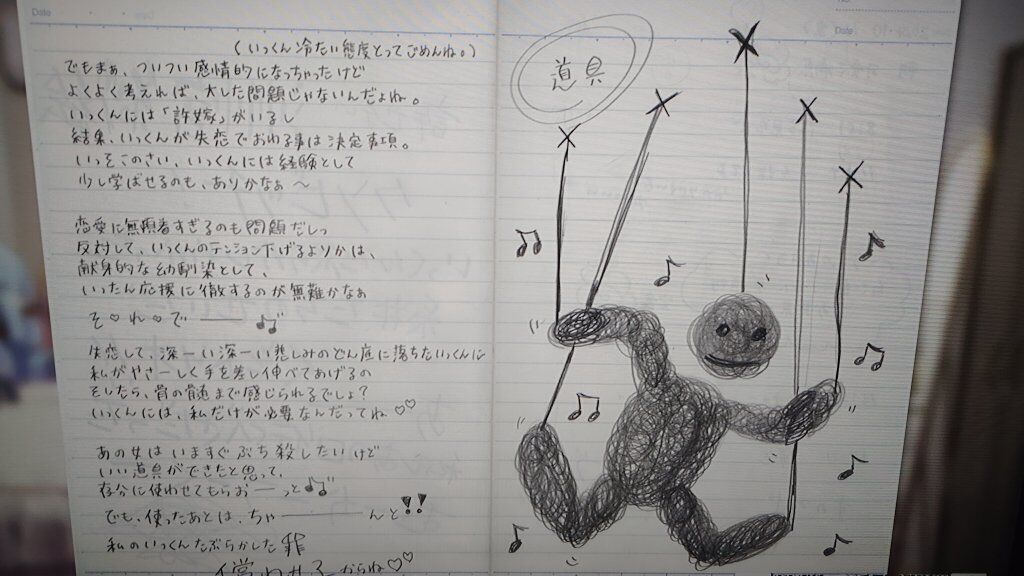 Date
(いっくん冷たい態度とってごめんね。)
でもまぁ、ついつい感情的になっちゃったけど
よくよく考えれば、大した問題じゃないんだよね。
いっくんには「許嫁」がいるし
結果、いっくんが失恋でおわる事は決定事項。
いっそこのさい、いっくんには経験として
少し学ばせるのも、ありかなぁ〜
恋愛に無頓着すぎるのも問題だしっ
反対して、いっくんのテンション下げるよりかは、
献身的な幼馴染として、
いったん応援に徹するのが無難かなぁ
そ♡れ♡で――♫
失恋して、深ーい深ーい悲しみのどん底に落ちたいっくんに
私がやさーしく手を差し伸べてあげるの
そしたら、骨の髄まで感じられるでしょ?
いっくんには、私だけが必要なんだってね♡♡
あの女はいますぐぶち殺したいけど
いい道具ができたと思って、
存分に使わせてもらおーっと♫
でも、使ったあとは、ちゃ――――んと!!
私のいっくんたぶらかした罪
償わせるからね♡♡
道具
Date